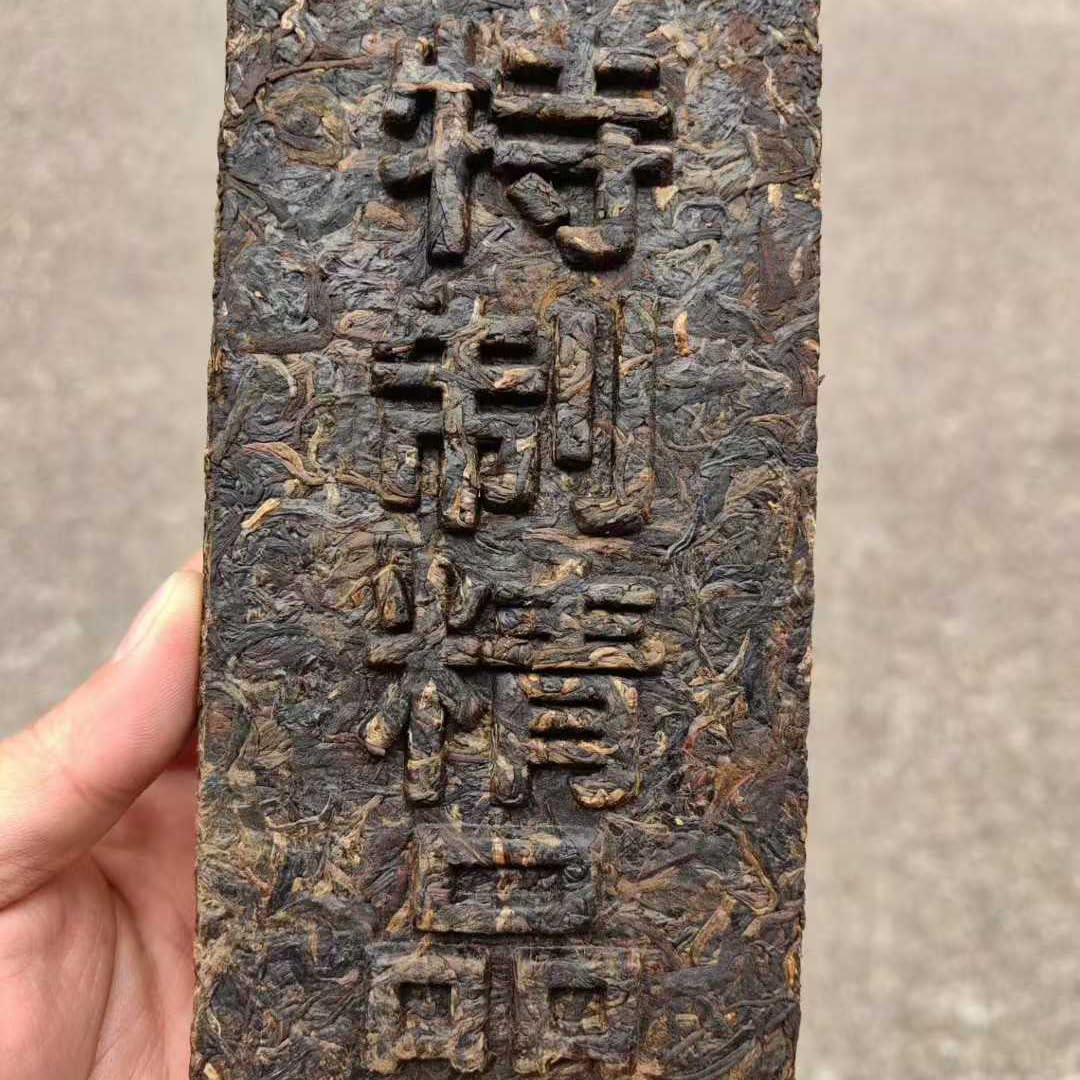 特制精品